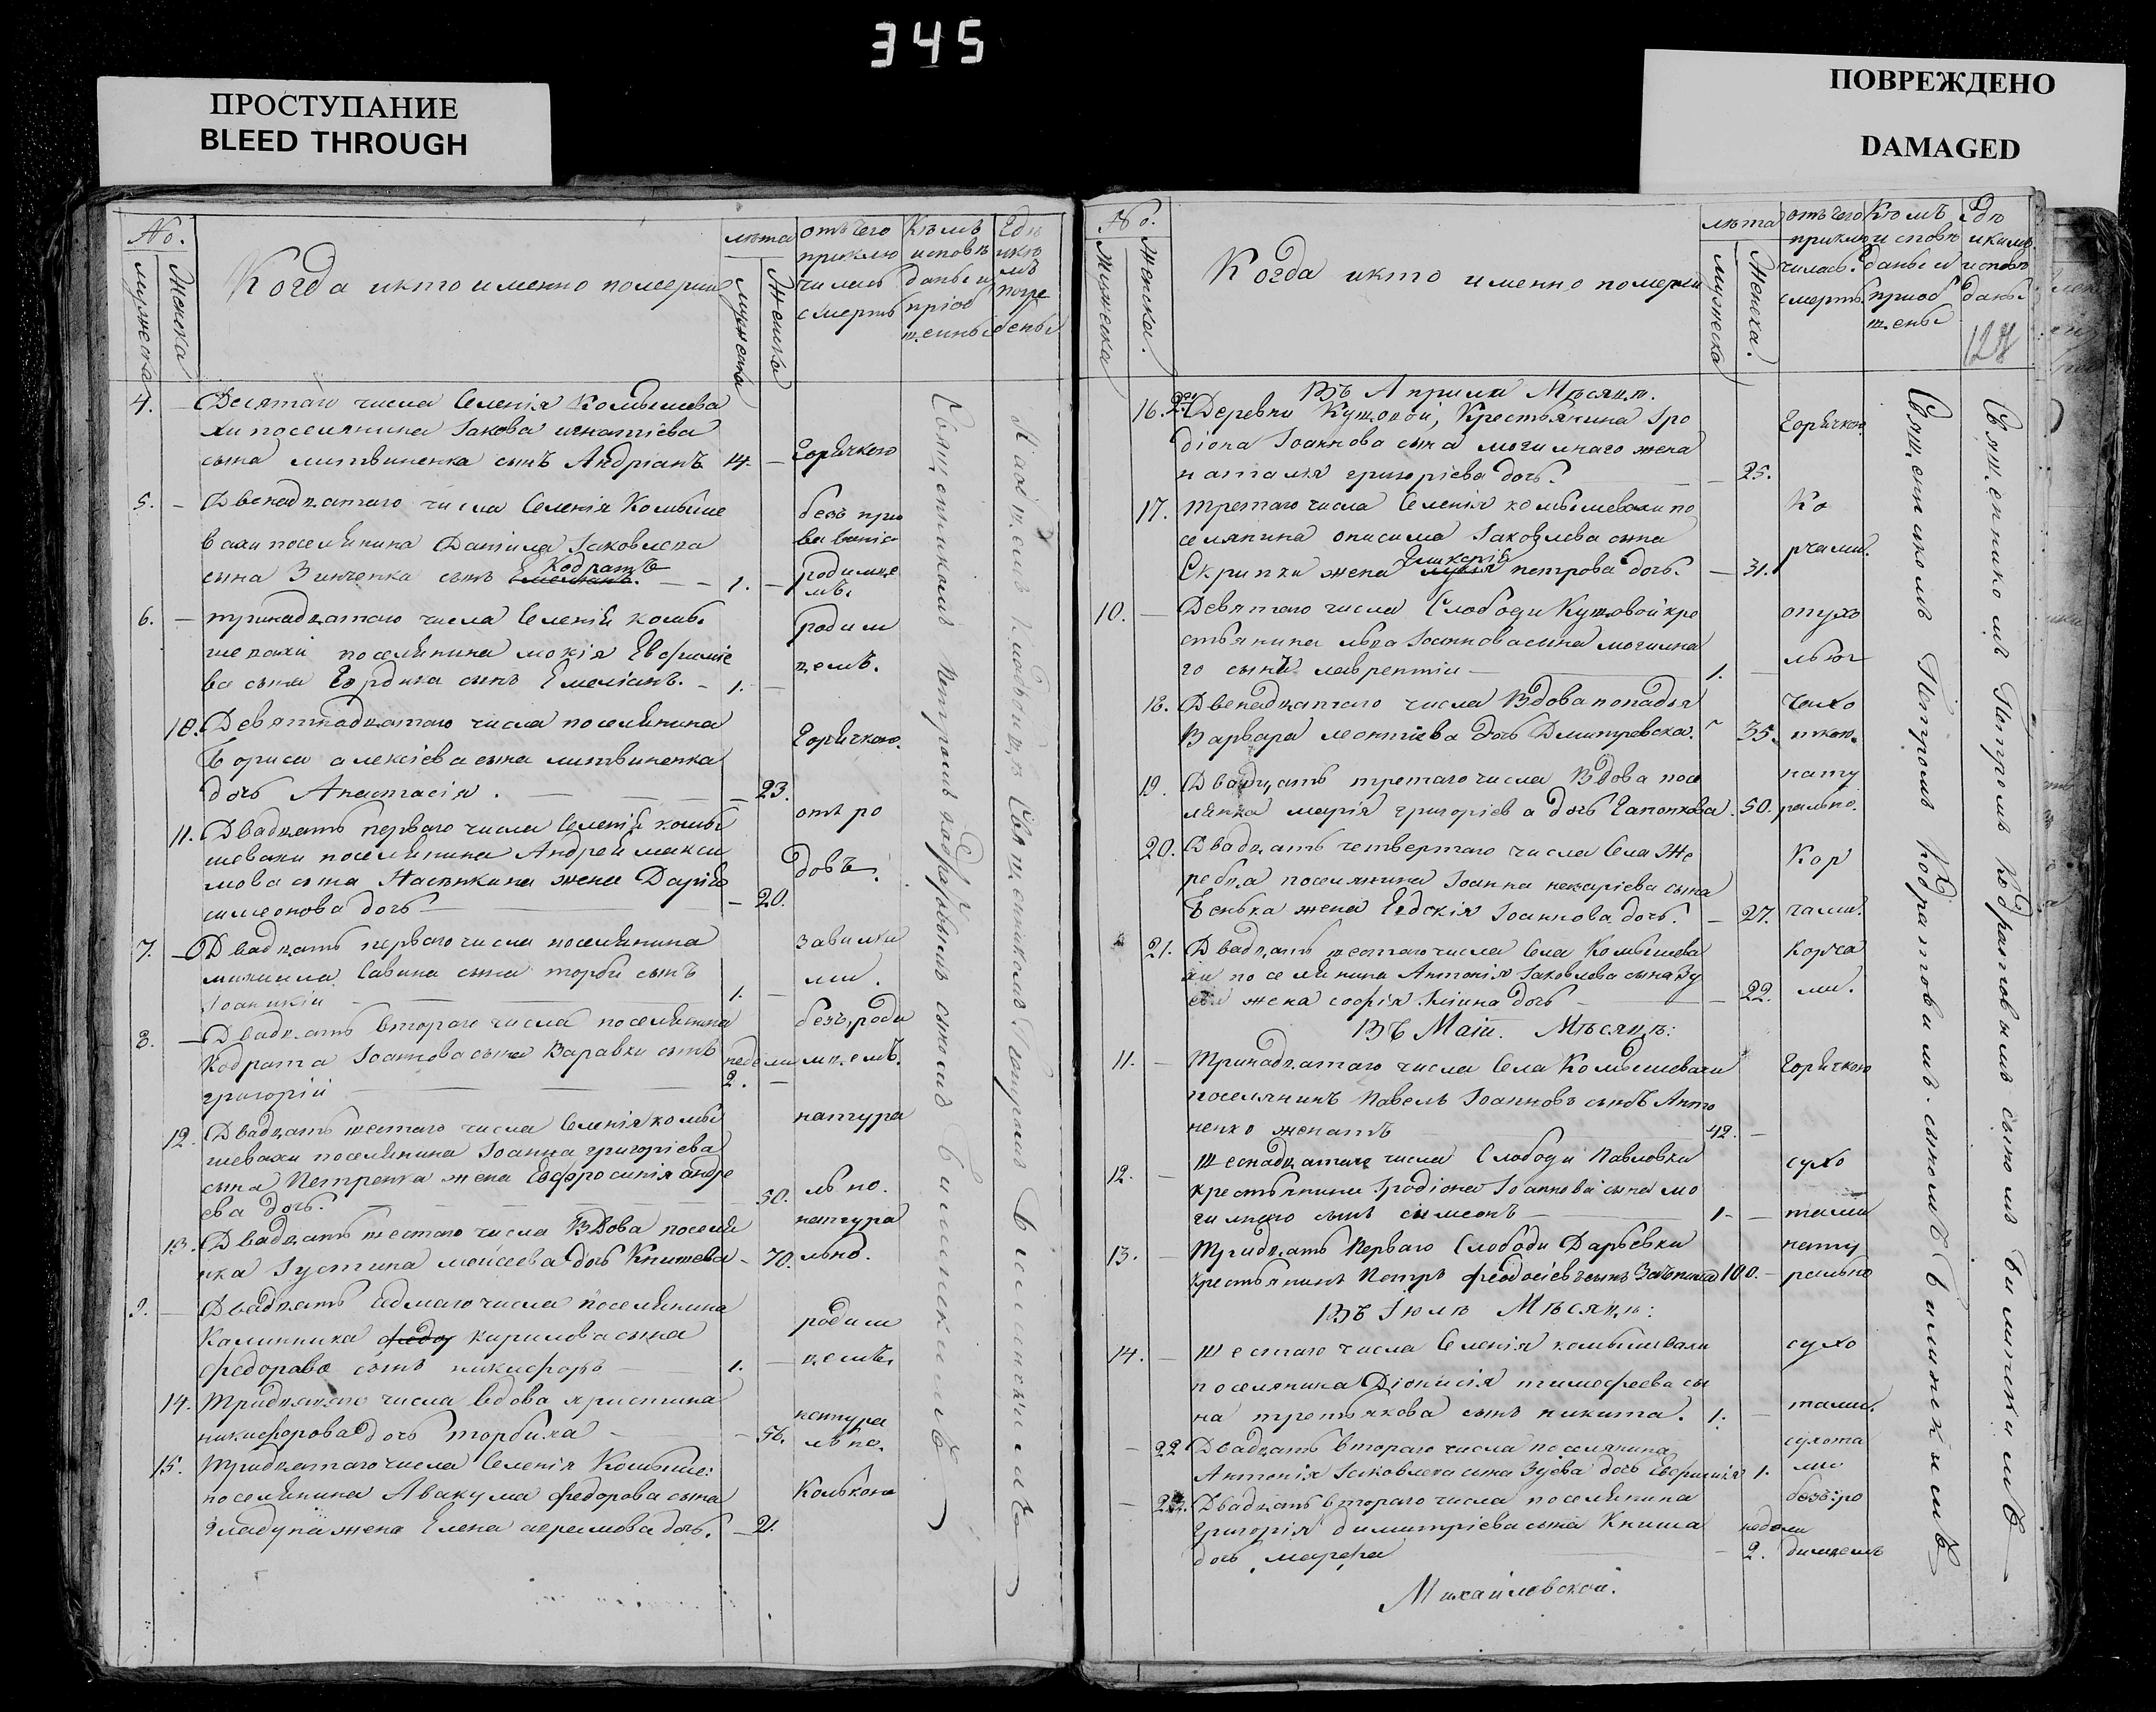 345
ПРОСТУПАНИЕ
BLEED THROUGH
ПОВРЕЖДЕНО
DAMAGED
No.
мужеска
Женска
Когда икто именно померли
лѣта
мужеска
Женска
отъ чего
приклю
чилась
смерть
Кѣмъ
исповѣ
даны и
пріоб
щенны
Гдѣ
икѣ
мъ
погре
бены
4. — Десятаго числа Селенія Комышева
хи поселянина Іакова игнатіева
сына литвиненка сынъ Андріанъ 4. — Горячкою
5. — Двенадцатаго числа Селенія Комыше
вахи поселянина Даніила Іаковлева
сына Зинченка сынъ Кодратъ 1. —
родимце
мъ.
6. — тринадцатаго числа Селеній комы
шевахи поселянина мокія Евфиміе
ва сына сынъ Емеліанъ. — 1. —
родим
цемъ.
10. Девятнадцатаго числа поселянина
Бориса алексіева сына литвиненка
дочь Анастасія. — 23.
Горячкою.
11. Двадцать перваго числа Селеній комы
шевахи поселянина Андрей макси
мова сына жена Дарія
симеонова дочь — 20.
отъ ро
довъ.
7. — Двадцать перваго числа поселянина
михаила Савина сына торби сынъ
Іоаникій 1. —
8. — Двадцать втораго числа поселянина
Кодрата Іоаннова сына Варавки сынъ
григорій — недели 2. —
12. Двадцать шестаго числа Селенія комы
шевахи поселянина Іоанна григоріева
сына Петренка жена Евфросинія андре
ева дочь. 50.
натура
льно.
13. Двадцать шестаго числа Вдова поселя
нка Іустина моисеева дочь Книшева — 70.
натура
льно.
9. — Двадцать Седмаго числа поселянина
Калинника кирилова сына
федорова сынъ никифоръ 1. —
родим
цемъ
14. Тридцатаго числа вдова христина
никифорова дочь торбиха — 56.
натура
льно.
15. Тридцатаго числа Селенія Комыше:
поселянина Авакума федорова сына
гладуна жена Елена аврамова дочь. — 21.
Священникомъ Петромъ Кодратовымъ сыномъ Билинскимъ
No.
Мужеска
Женска.
Когда икто именно померли
лѣта
мужеска
Женска.
отъ чего
приклю
чилась
смерть
Кѣмъ
исповѣ
даны и
приоб
щены
Гдѣ
икимъ
исповѣ
даны
127
Въ Априлѣ Мѣсяцѣ.
16. Деревни Куцовой, Крестьянина Іро
діона Іоаннова сына могилнаго жена
наталія григоріева дочь. — 25.
Горячкою
17. третаго числа Селенія комышевахи по
селянина онисима Іаковлева сына
Скрипки жена Гликерія петрова дочь. — 31.
Ко
рчами.
10. — Девятаго числа Слободи Куцовой кре
стьянина льва Іоаннова сына могилна
го сынъ лаврентій — 1. —
опухо
лью
18. Двенадцатаго числа Вдова попадья
Варвара леонтіева дочь Дмитревска. 35.
19. Двадцать третаго числа Вдова посе
лянка марія григоріева дочь Гапонкова. 50.
нату
рально.
20. Двадцать четвертаго числа Села Же
ребца поселянина Іоанна назаріева сына
Бенька жена Евдокія Іоаннова дочь. — 27.
Кор
чами.
21. Двадцать шестаго числа Села Комышева
хи поселянина Антонія Іаковлева сына Зу
ева жена софія Іліина дочь — 22.
Корча
ми.
Въ Маіи. Мѣсяцѣ:
11. — Тринадцатаго числа Села Комышевахи
поселянинъ Павелъ Іоанновъ сынъ Анто
ненко женатъ 42. —
Горячкою
12. — Шеснадцатаго числа Слободи Павловки
крестьянина Іродіона Іоаннова сына мо
гилнаго сынъ симеонъ 1. —
сухо
тами
13. — Тридцать Перваго Слободи Дарьевки
крестьянинъ Петръ феодосіевъ сынъ 100. —
нату
рально
Въ Іюлѣ Мѣсяцѣ:
14. — Шестаго числа Селенія комышевахи
поселянина Діонисія тимофеева сы
на третьякова сынъ никита. 1. —
сухо
тами.
— 22 Двадцать втораго числа поселянина
Антонія Іаковлева сына Зуева дочь Евфимія 1.
сухота
ми
— 23. Двадцать втораго числа поселянина
Григорія димитріева сына Книша
дочь марфа — недели 2.
Михайловской.
Священникомъ Петромъ Кодратовимъ сыномъ Билинскимъ
Священникомъ Петромъ Кодратовымъ сыномъ Билинскимъ